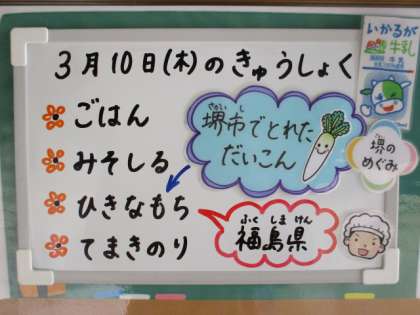 3月10日(木)のきゅうしょく
いかるが
牛乳
ごはん
さかいし
堺市でとれた
だいこん
堺の
めぐみ
みそしる
ひきなもち
ふくしまけん
福島県
てまきのり